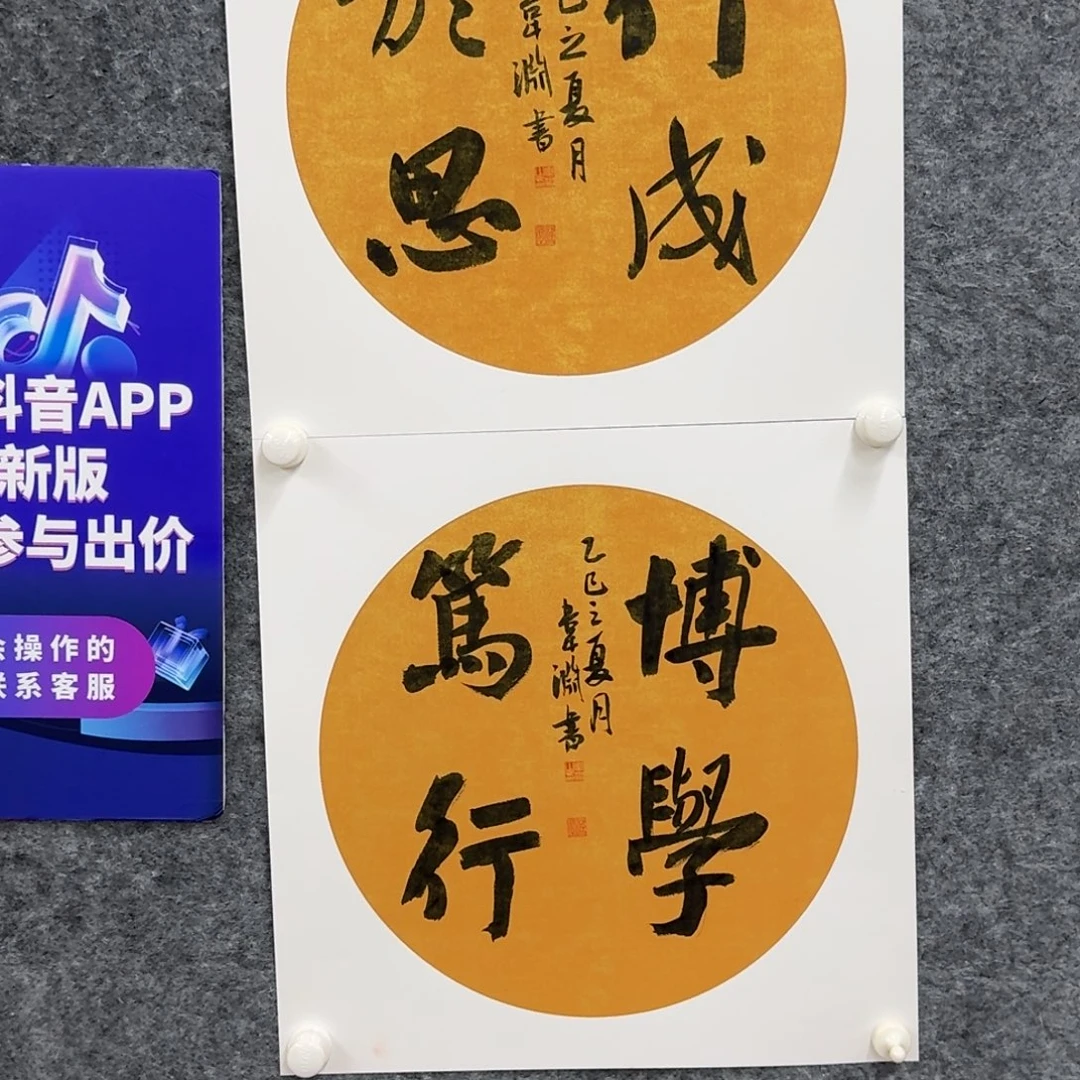 行成
於思
乙巳之夏月
韋淵書
博學
篤行
乙巳之夏月
韋淵書
抖音APP
新版
参与出价
操作的
联系客服